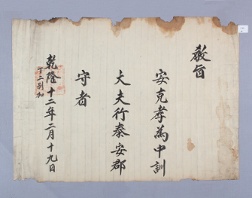 教旨
安克孝為中訓
大夫行泰安郡
守者
乾隆十二年二月十九日